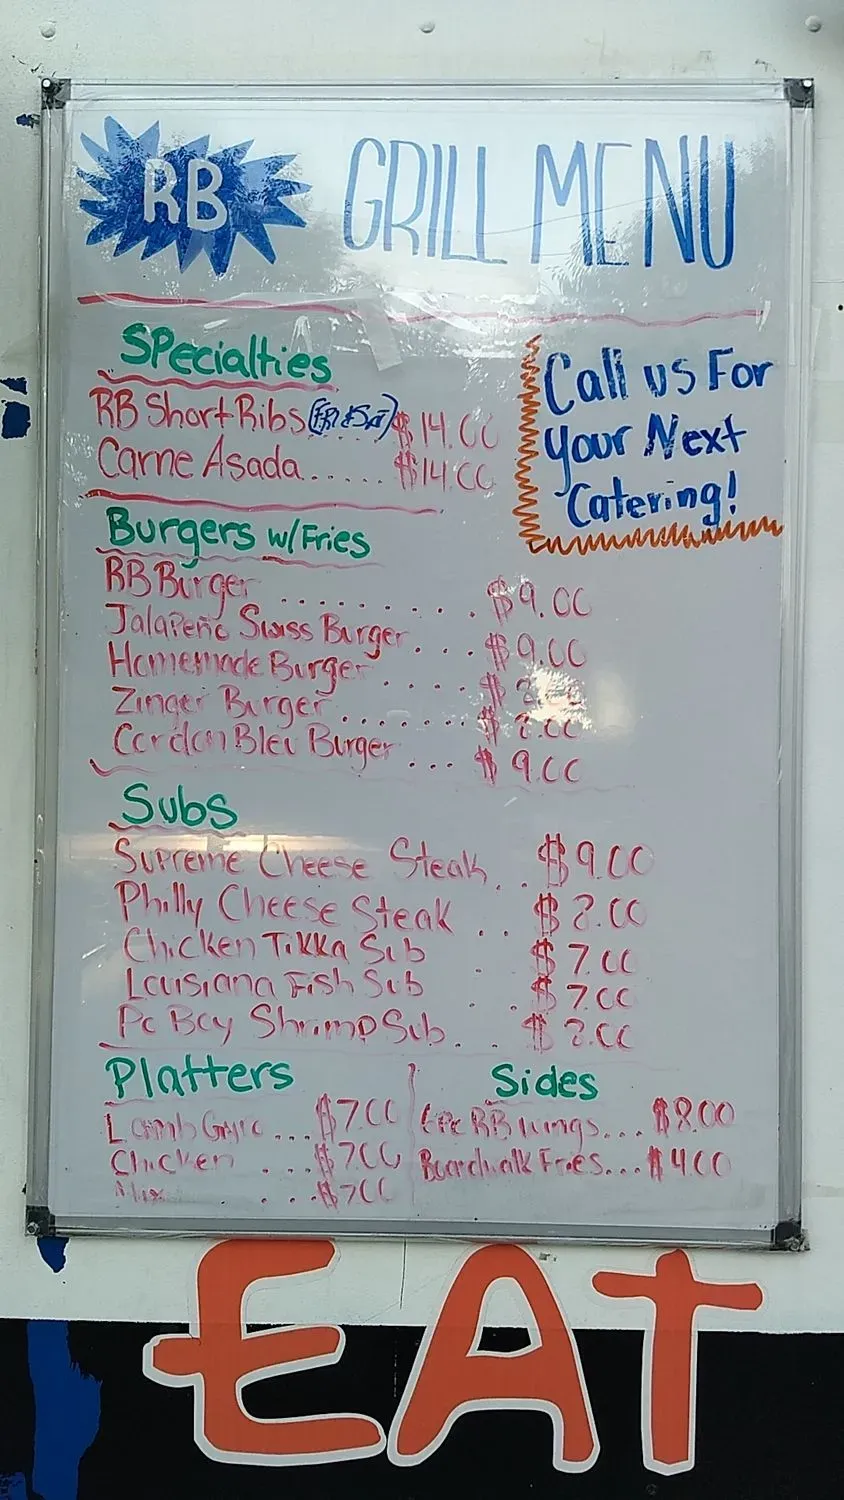 RB GRILL MENU
Specialties
RB Short Ribs (FRI & SAT) $14.00
Carne Asada..... $14.00
Call us For
your Next
Catering!
Burgers w/Fries
RB Burger ......... $9.00
Jalapeño Swiss Burger... $9.00
Homemade Burger ..... $8.00
Zinger Burger....... $8.00
Cordon Bleu Burger ... $9.00
Subs
Supreme Cheese Steak .. $9.00
Philly Cheese Steak .. $8.00
Chicken Tikka Sub . $7.00
Louisiana Fish Sub . $7.00
Po Boy Shrimp Sub.. $8.00
Platters
Lamb Gyro ... $7.00
Chicken .... $7.00
Mix .... $7.00
Sides
6pc RB Wings... $8.00
Boardwalk Fries... $4.00
EAT